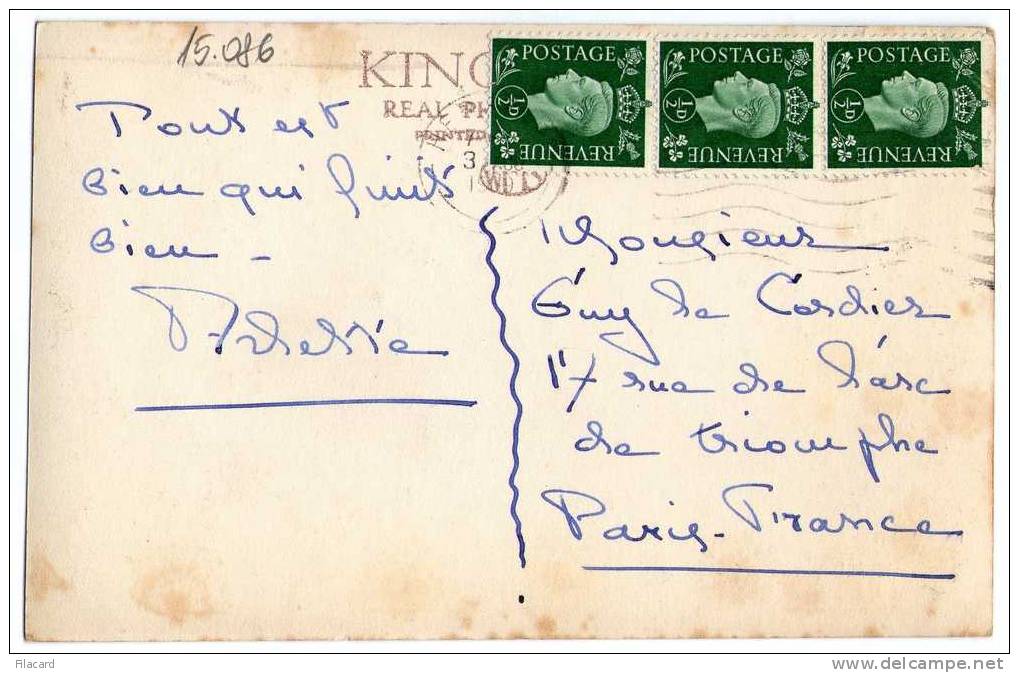 15.086
KING
REAL PH
PRINTED
POSTAGE
½D
REVENUE
POSTAGE
½D
REVENUE
POSTAGE
½D
REVENUE
Tout est
bien qui finit
bien -
Monsieur
Guy de Cordier
17 rue de l'arc
de triomphe
Paris - France
Filacard
www.delcampe.net